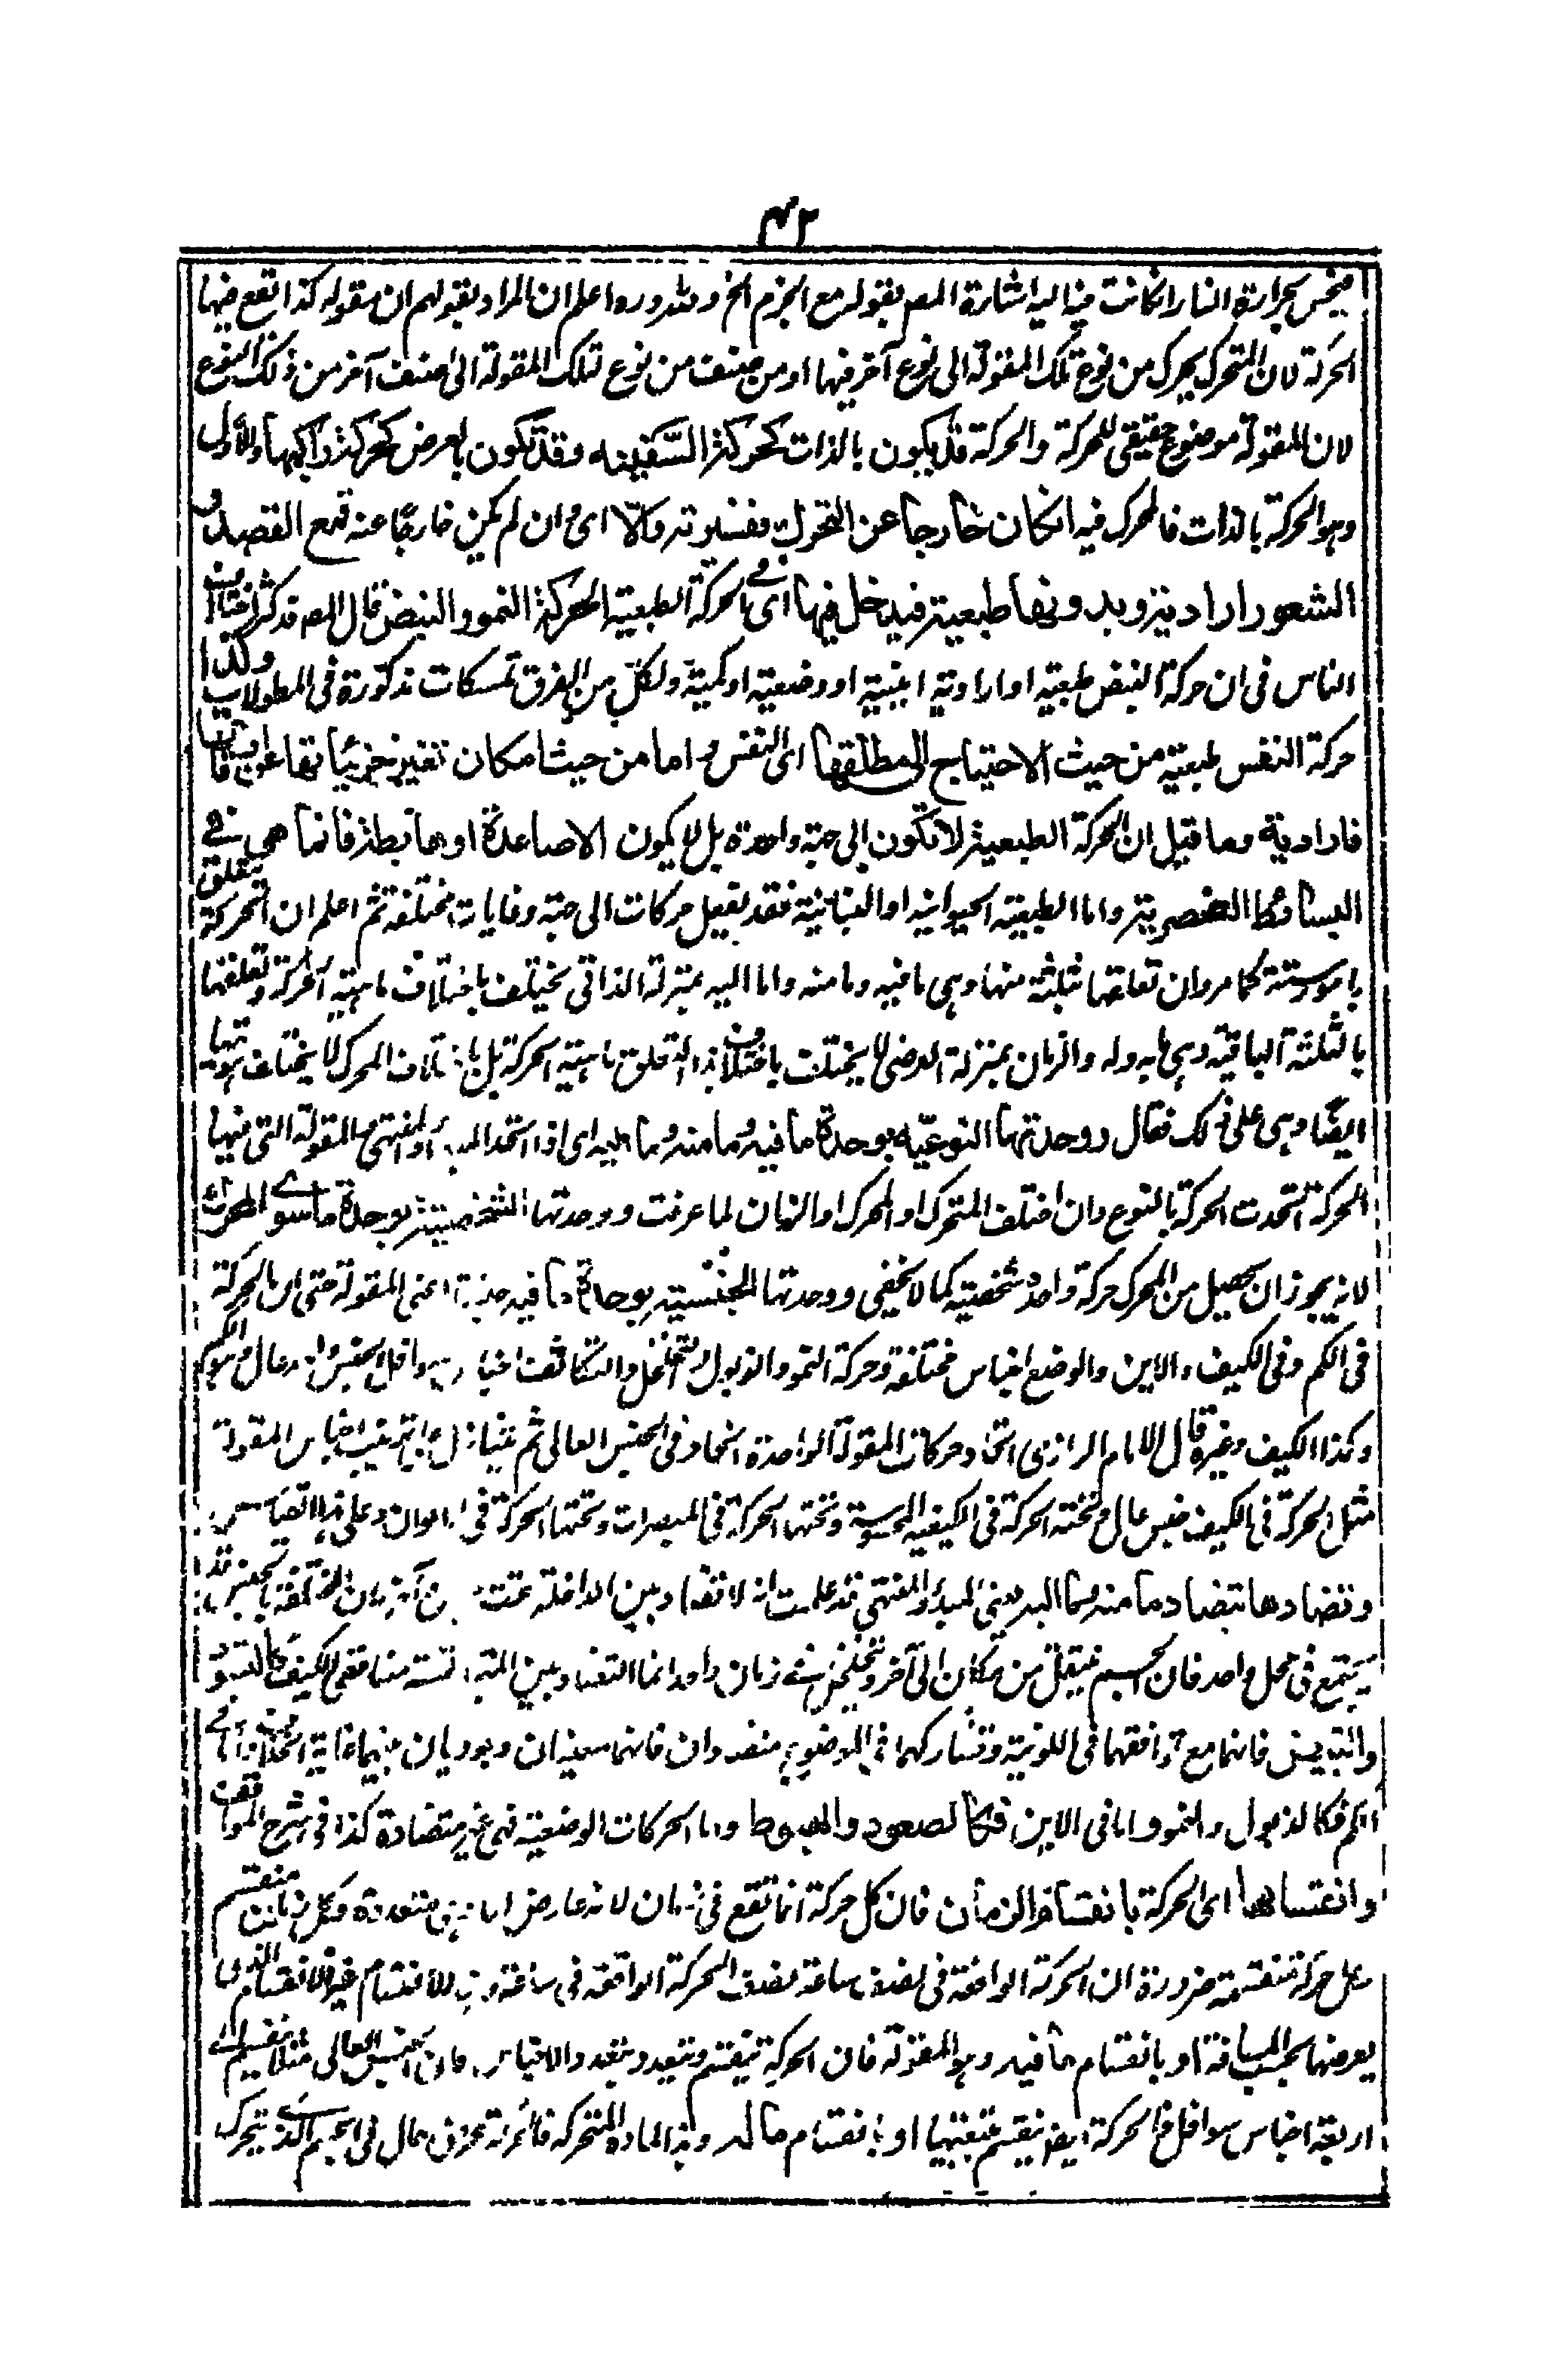 ۴۲
بحرارة النار انكانت فيه اليه اشارة المصـ بقوله مع الجزم الخ ولله دره اعلم ان المراد بقولهم ان مقوله كذا تقع فيها
الحركة لان المتحرك يتحرك من نوع تلك المقولة الى نوع آخر فيها او من صنف من نوع تلك المقولة الى صنف آخر من ذلك النوع
لان المقولة موضوع حقيقى للحركة والحركة قد يكون بالذات كحركة السفينه وقد تكون بالعرض كحركة راكبها والاول
وهو الحركة بالذات فالمحرك فيه انكان خارجا عن المتحرك فقسرية والا اى وان لم يكن خارجا عنه فمع القصد و
الشعور ارادية وبدونها طبعية فيدخل فيها اى فى الحركة الطبعية الحركة النمو والنبض قال المصـ قد كثر اختلاف
الناس فى ان حركة النبض طبعية او ارادية اينية او وضعية او كمية ولكل من الفرق تمسكات مذكورة فى المطولات وكذا
حركة النفس طبعية من حيث الاحتياج الى مطلقها اى النفس و اما من حيث امكان تغيير جزئياتها عن اوقاتها
فارادية وما قيل ان الحركة الطبعية لا تكون الى جهة واحدة بل لا يكون الا صاعدة او هابطة فانما هى فى
البسائط العنصرية واما الطبعية الحيوانية او النباتية فقد يفعل حركات الى جهة وغايات مختلفة ثم اعلم ان الحركة تتعلق
بامور ستة كما مر وان تعلقها بثلثة منها وهى ما فيه وما منه وما اليه بمنزلة الذاتى يختلف باختلاف ماهية الحركة وتعلقها
بالثلثة الباقية وهى ما به وله والزمان بمنزلة العرضى لا يختلف باختلاف هذا التعلق ماهية الحركة بل باختلاف المحرك لا يختلف هويتها
ايضا وهى على ذلك فقال ووحدتها النوعيه بوحدة ما فيه وما منه وما اليه اى اذا اتحد المبدأ والمنتهى والمقولة التى فيها
الحركة اتحدت الحركة بالنوع وان اختلف المتحرك او المحرك او الزمان لما عرفت ووحدتها الشخصية بوحدة ما سوى المحرك
لانه يجوز ان يحصل من المحرك حركة واحدة شخصية كما لا يخفى ووحدتها الجنسية بوحدة ما فيه اعنى المقولة حتى ان الحركة
فى الكم وفى الكيف والاين والوضع اجناس مختلفة وحركة النمو والذبول والتخلخل والتكاثف
وكذا الكيف وغيره قال الامام الرازى اتحاد حركات المقولة الواحدة اتحاد فى الجنس العالى ثم يتنازل ترتيب اجناس المقولة
مثل الحركة فى الكيف جنس عال وتحته الحركة فى الكيفية المحسوسة وتحتها الحركة فى المبصرات وتحتها الحركة فى الالوان وعلى هذا القياس
وتضادها بتضاد ما منه وما اليه يعنى المبدأ والمنتهى قد علمت انه لا تضاد بين الداخلة تحت
يجتمع فى محل واحد فان الجسم ينتقل من مكان الى آخر ويتخلخل فى زمان واحد انما التضاد بين فمع الكيف كالتسود
والتبييض فانهما مع توافقهما فى اللونية وتشاركهما فى الموضوع متضدان فانهما معنيان وجوديان بينهما غاية الخلاف واما فى
الكم فكالذبول والنمو واما فى الاين فكالصعود والهبوط واما الحركات الوضعية فهى غير متضادة كذا فى شرح المواقف
وانقسامها اى الحركة بانقسام الزمان فان كل حركة انما تقع فى زمان لانه عارض متعددة وكل زمان منقسم
كل حركة منقسمة ضرورة ان الحركة الواقعة فى نصف ساعة نصف الحركة الواقعة فى ساعة وهذا الانقسام غير الانقسام الذى
يعرضها بحسب المسافة او بانقسام ما فيه وهو المقولة فان الحركة تنقسم وتتعدد بتعدد الاجناس فان الجنس العالى مثلا ينقسم الى
اربعة اجناس سوافل فالحركة ايضا ينقسم او بانقسام ما له وهذا المادة المتحركة فالحركة حال فى الجسم الذى يتحرك